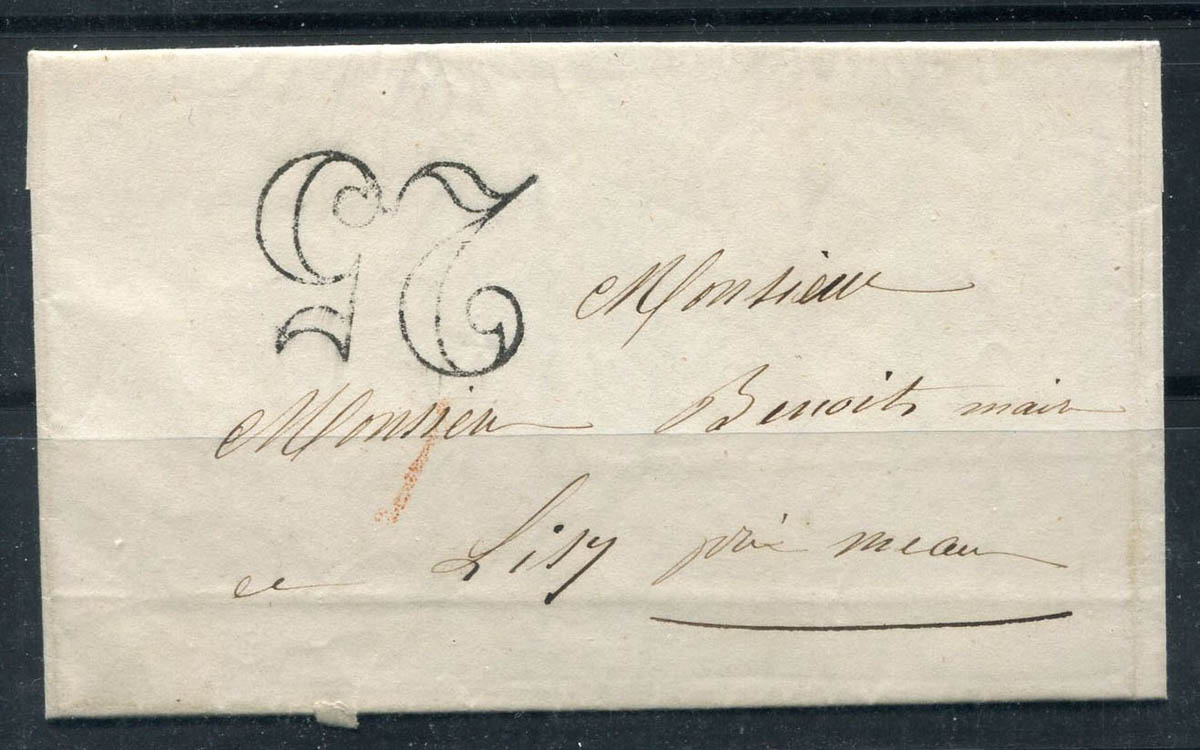 25
Monsieur
Monsieur Benoit maire
a Lisy près meaux